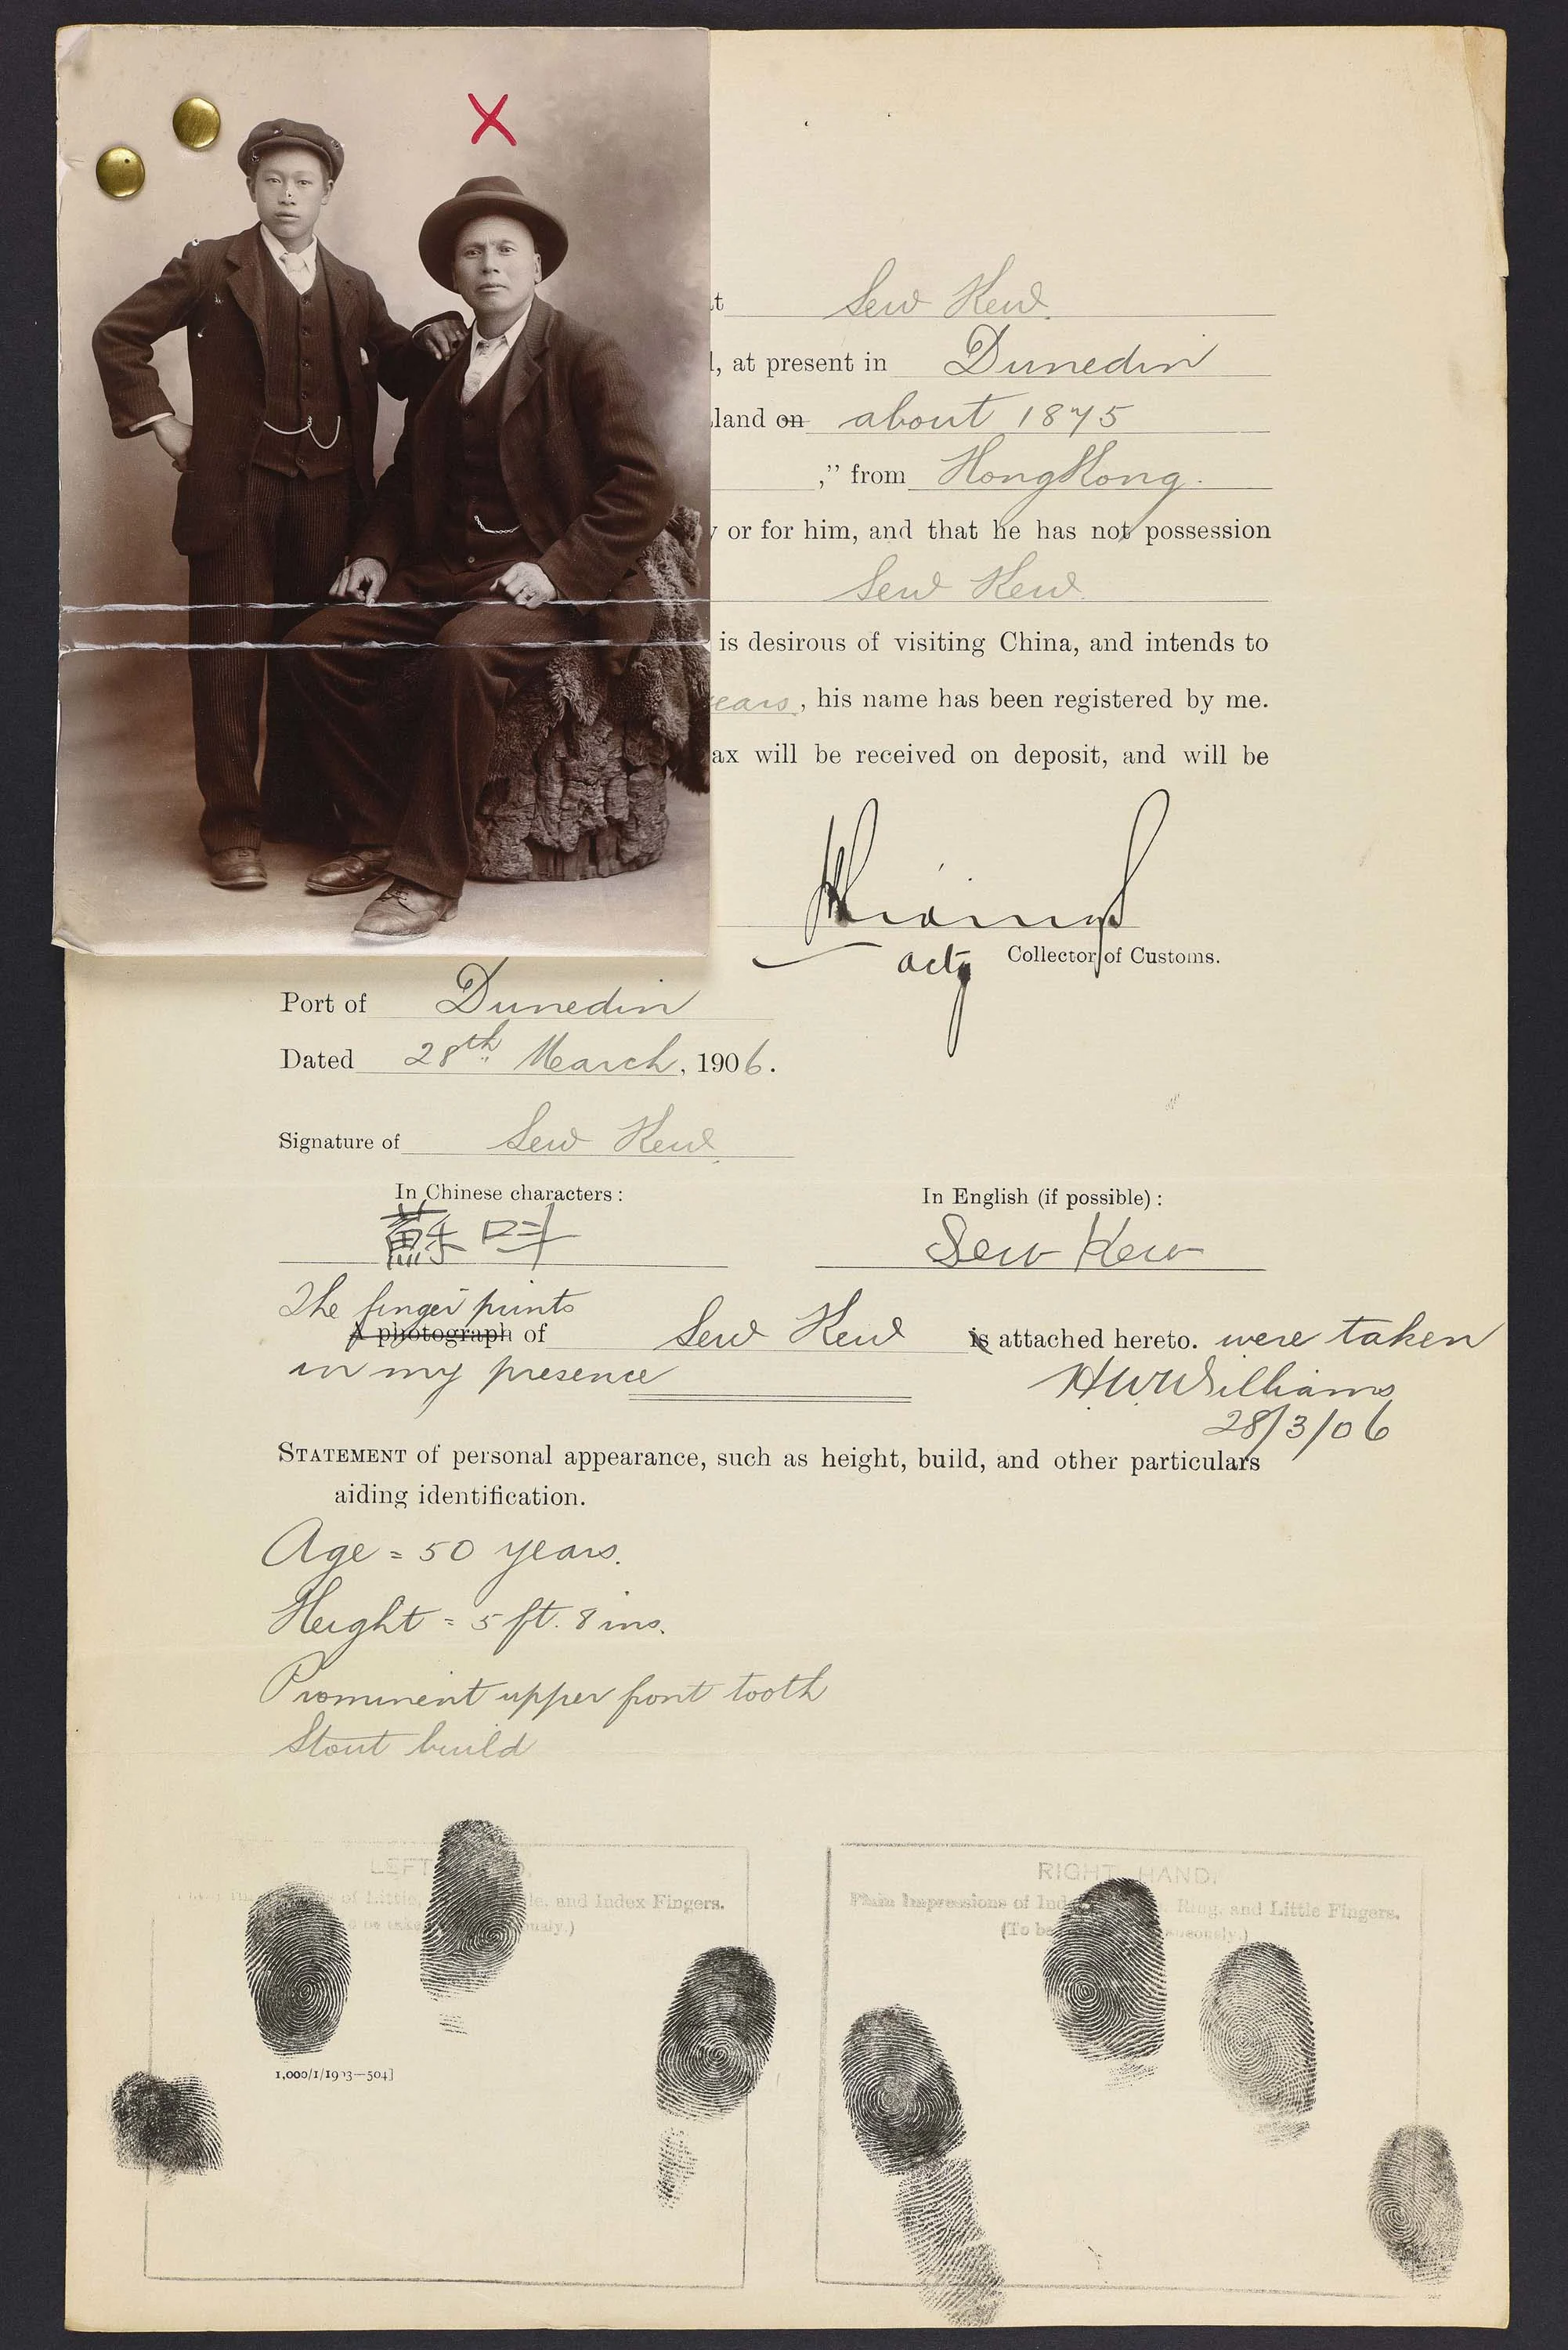 Sew Kew.
, at present in Dunedin
land on about 1875
," from Hong Kong.
or for him, and that he has not possession
Sew Kew.
is desirous of visiting China, and intends to
years, his name has been registered by me.
ax will be received on deposit, and will be
actg Collector of Customs.
Port of Dunedin
Dated 28th March, 1906.
Signature of Sew Kew.
In Chinese characters: In English (if possible):
蘇 Sew Kew
The finger prints
A photograph of Sew Kew is attached hereto. were taken
in my presence
H W Williams
28/3/06
STATEMENT of personal appearance, such as height, build, and other particulars
aiding identification.
Age = 50 years.
Height = 5 ft. 8 ins.
Prominent upper front tooth
Stout build
LEFT RIGHT HAND.
of Little, and Index Fingers. Plain Impressions of Ring, and Little Fingers.
(To be
1,000/1/1903—504]